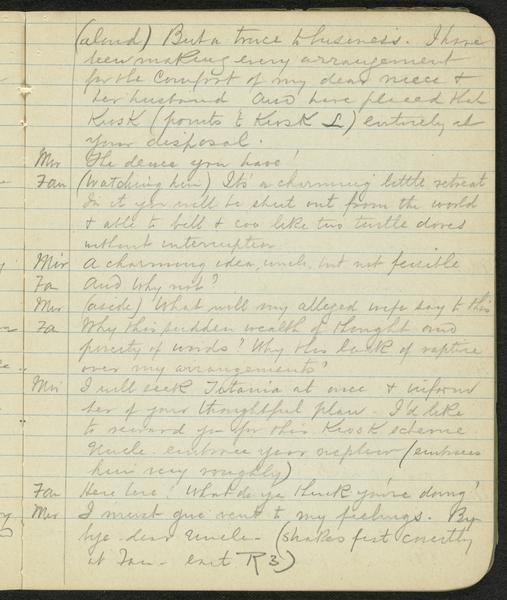 (aloud) But a truce to business. I have
been making every arrangement
for the comfort of my dear niece &
her husband and have placed that
Kiosk (points to Kiosk L) entirely at
your disposal.
Mir The deuce you have!
Fan (watching him) It's a charming little retreat
In it you will be shut out from the world
& able to bill & coo like two turtle doves
without interruption
Mir A charming idea, uncle, but not feasible
Fa And why not?
Mir (aside) What will my alleged wife say to this
Fa Why this sudden wealth of thought and
paucity of words? Why this lack of rapture
over my arrangements?
Mir I will seek Titania at once & inform
her of your thoughtful plan - I'd like
to reward you for this Kiosk scheme
Uncle - embrace your nephew (embraces
him very roughly)
Fan Here here! What do ye think you're doing!
Mir I must give vent to my feelings. By
bye - dear Uncle - (shakes fist covertly
at Fan - exit R 3)